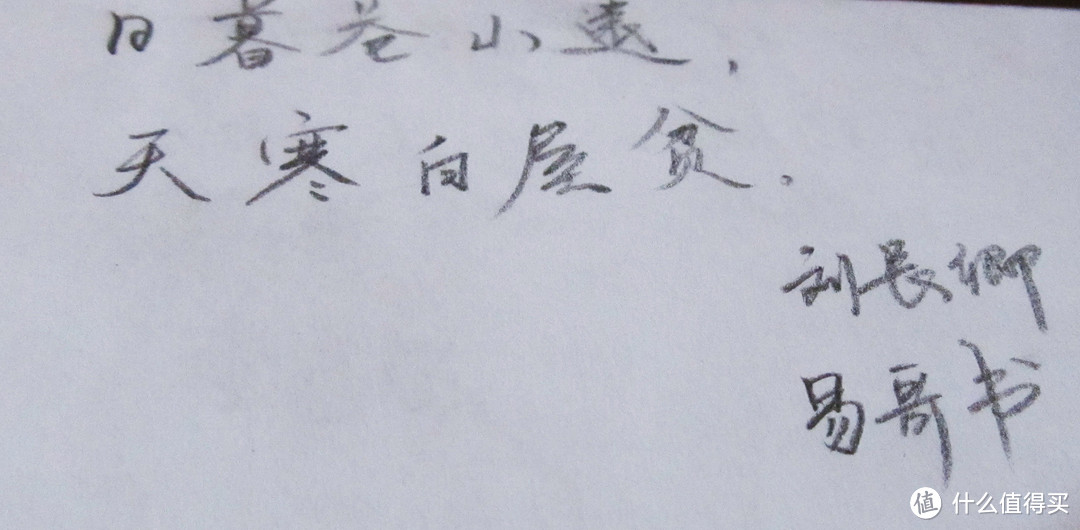 日暮苍山遠，
天寒白屋贫．
刘長卿
易哥书
值 什么值得买